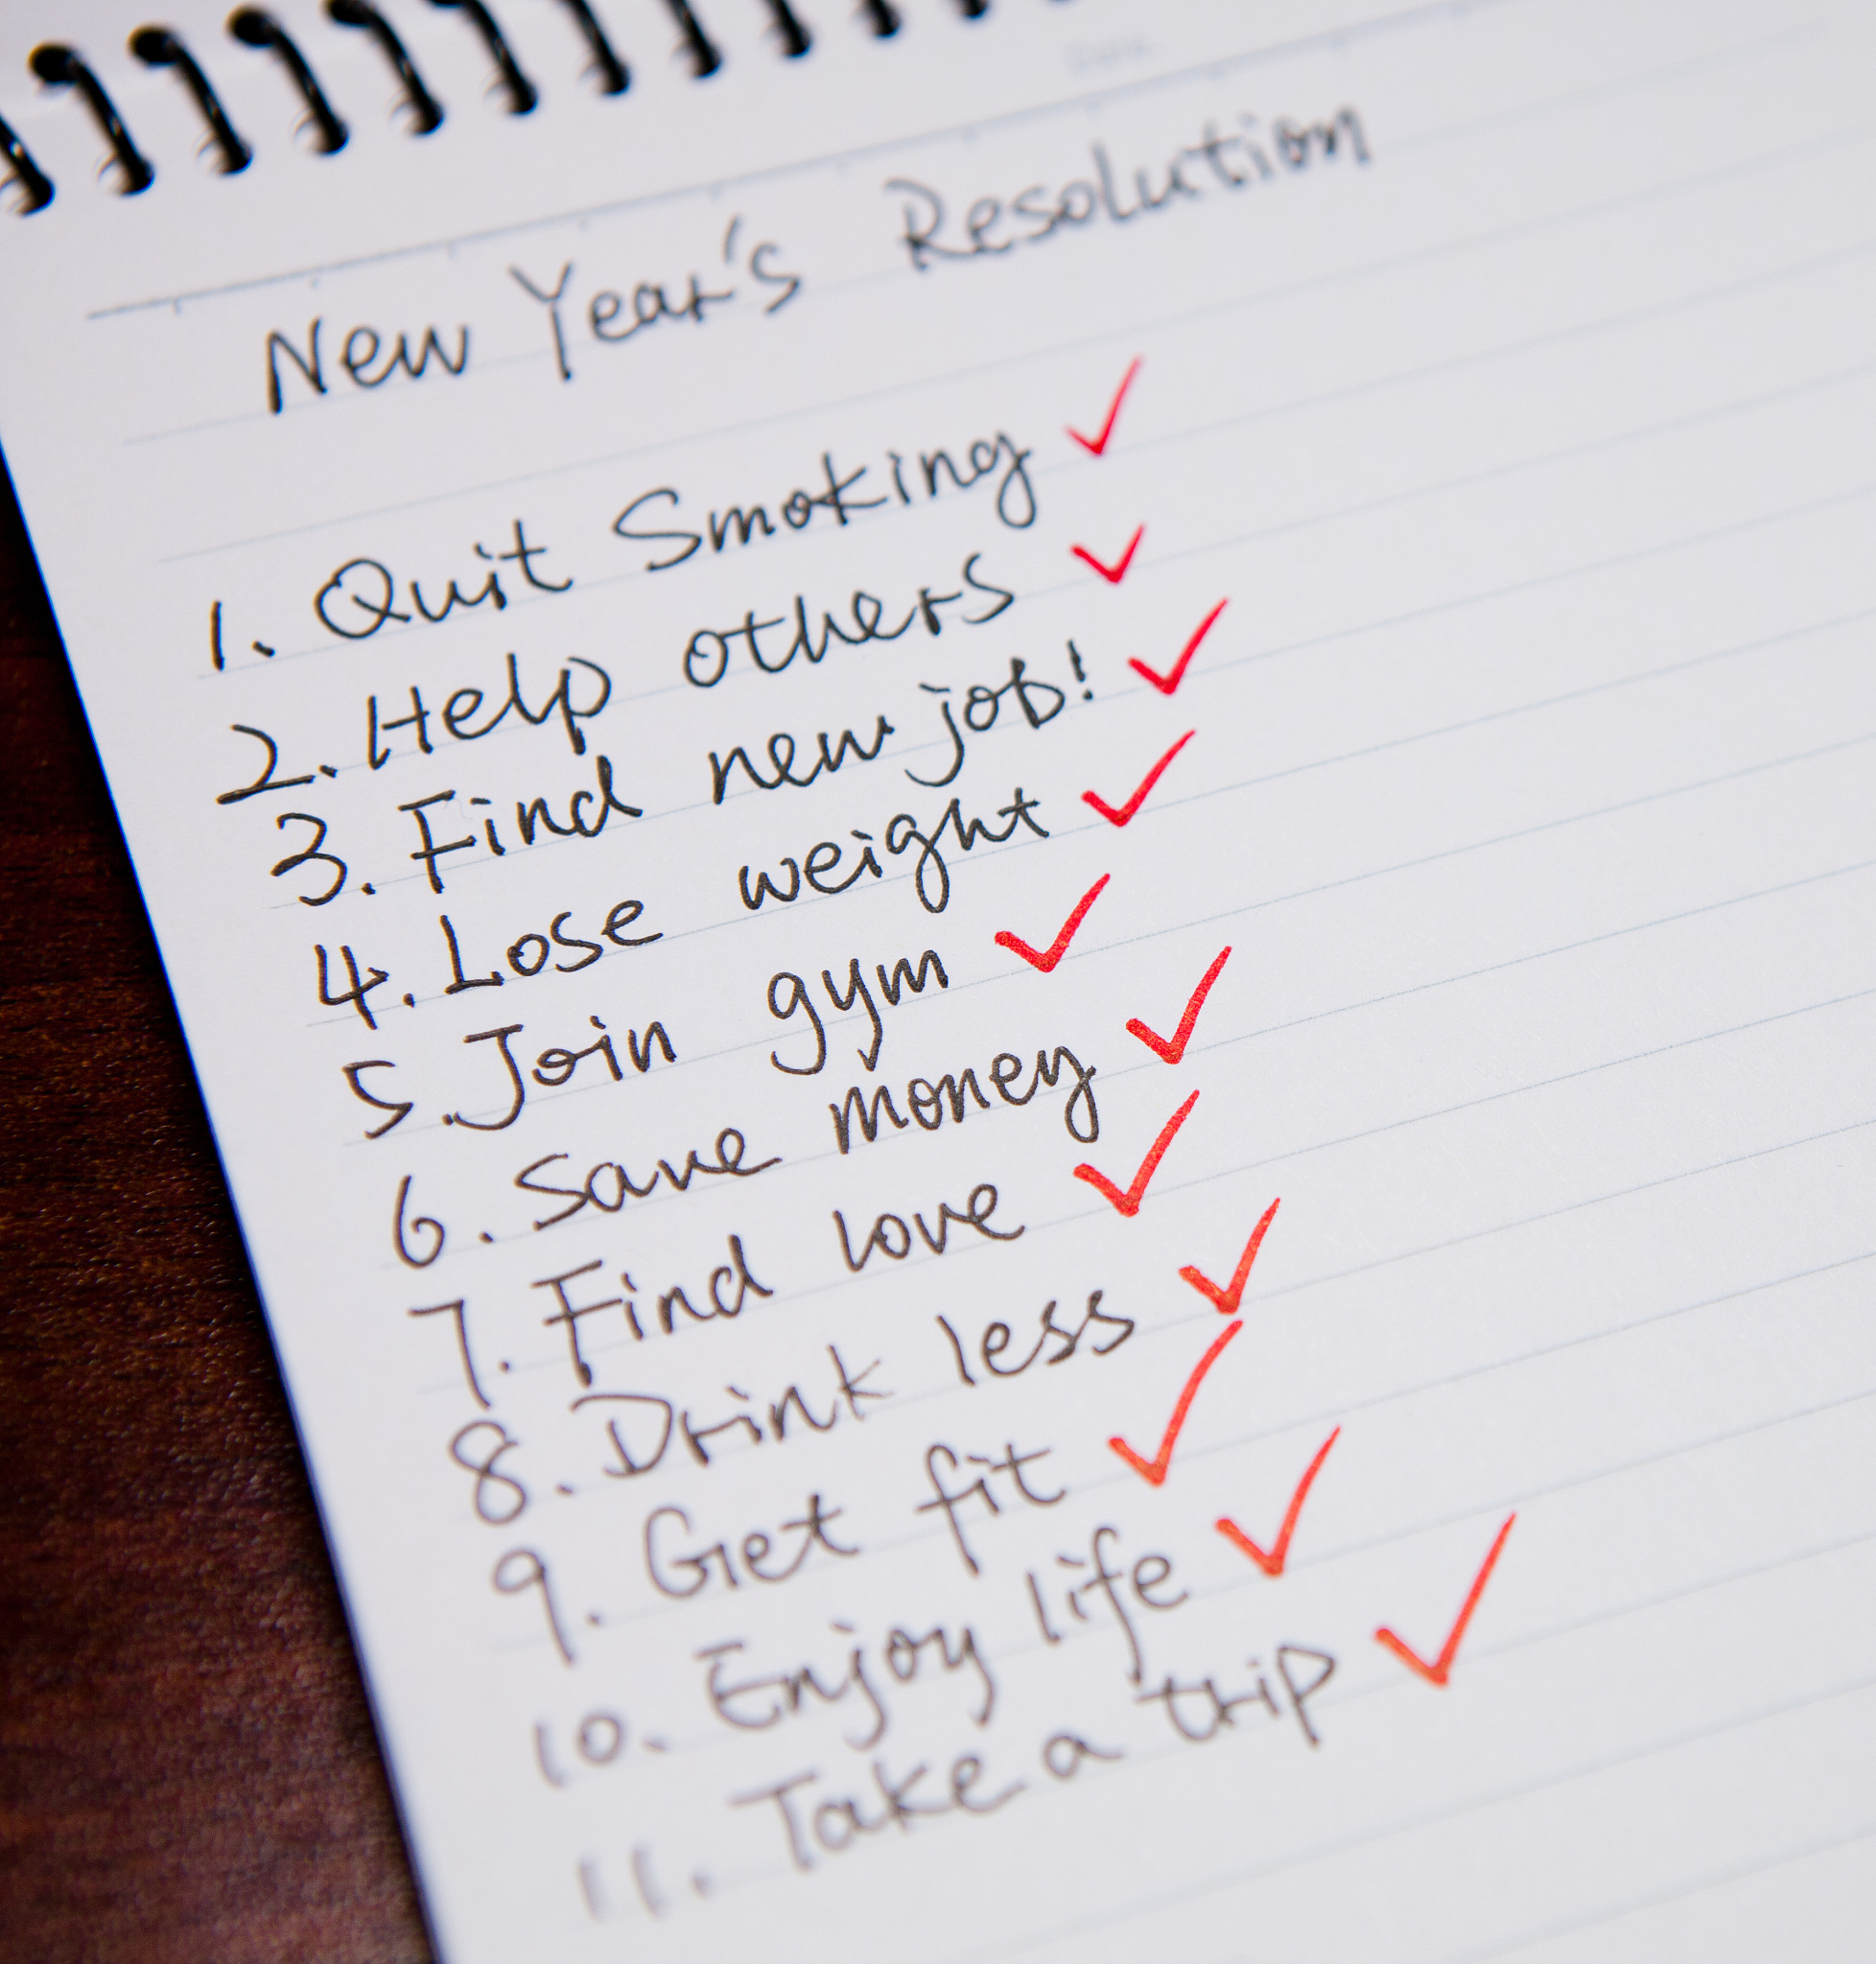 New Year's Resolution
1. Quit Smoking
2. Help others
3. Find new job!
4. Lose weight
5. Join gym
6. Save money
7. Find love
8. Drink less
9. Get fit
10. Enjoy life
11. Take a trip